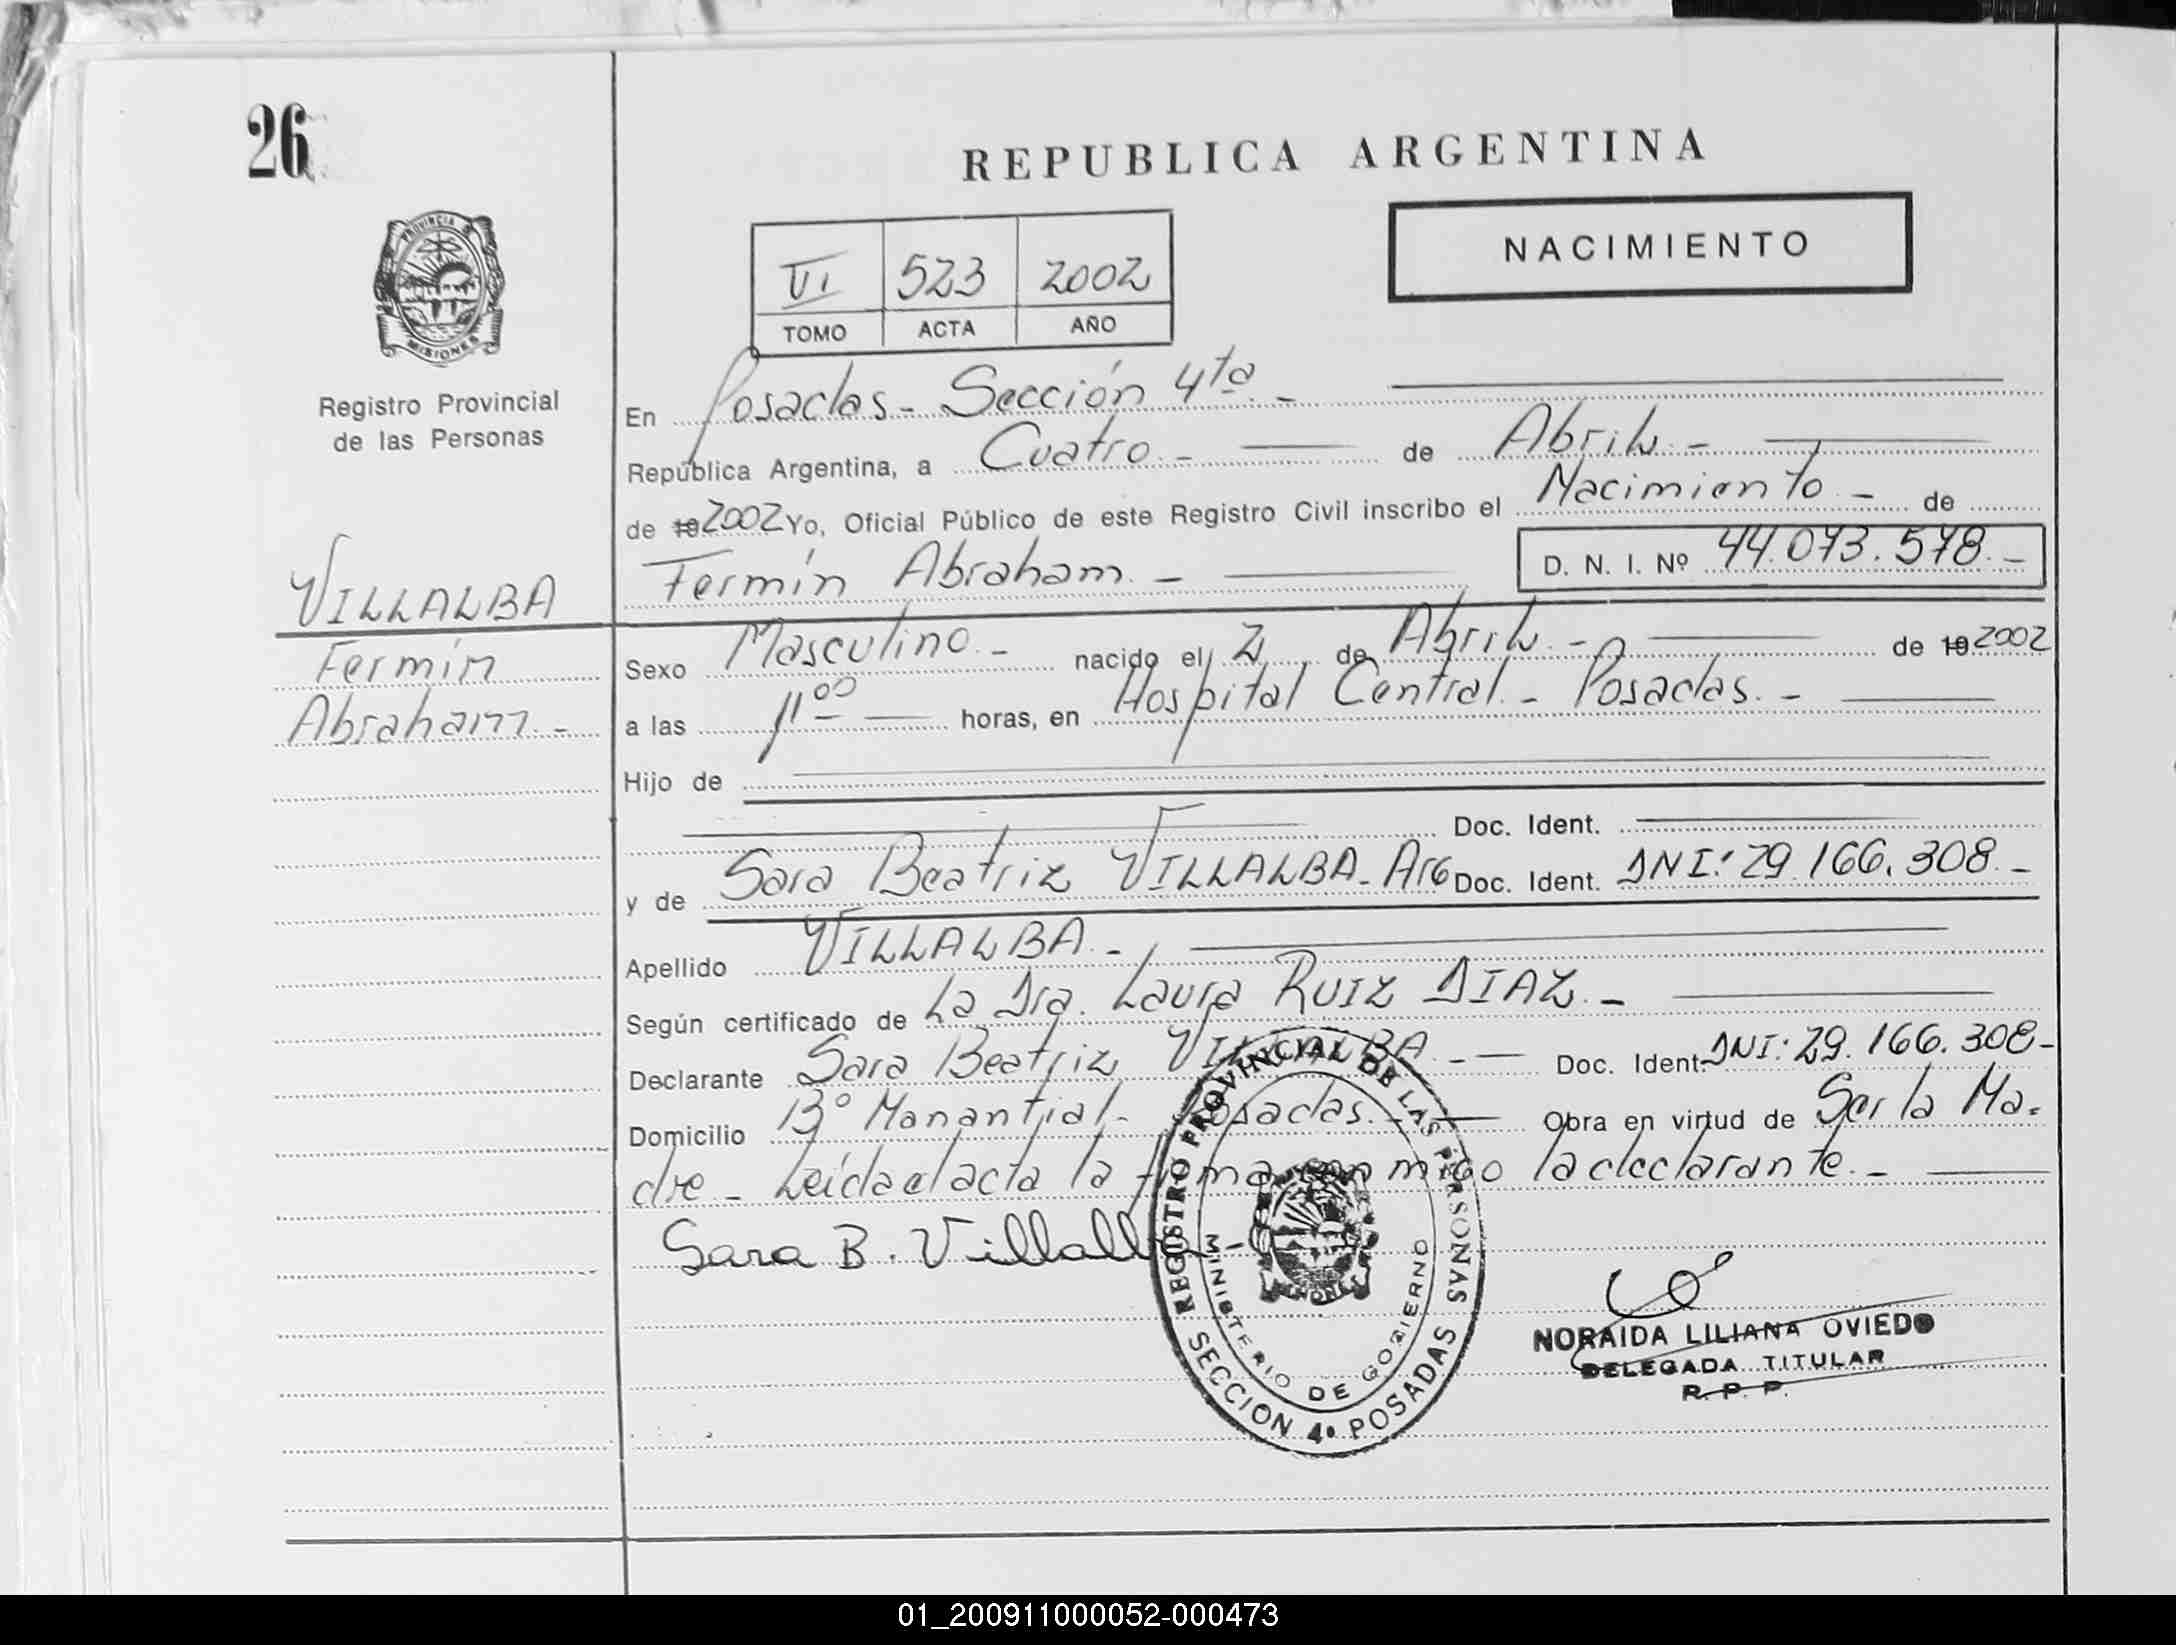 26
REPUBLICA ARGENTINA
NACIMIENTO
VI 523 2002
TOMO ACTA AÑO
PROVINCIA DE
MISIONES
Registro Provincial
de las Personas
En Posadas - Sección 4ta. -
República Argentina, a Cuatro. - de Abril. -
de 19 2002 Yo, Oficial Público de este Registro Civil inscribo el Nacimiento. - de
Fermín Abraham. - D. N. I. Nº 44.073.578. -
VILLALBA
Fermín
Abraham. -
Sexo Masculino. - nacido el 2 de Abril. - de 19 2002
a las 11 00 horas, en Hospital Central. - Posadas. -
Hijo de
Doc. Ident.
y de Sara Beatriz VILLALBA - Arg Doc. Ident. DNI: 29.166.308. -
Apellido VILLALBA. -
Según certificado de La Dra. Laura RUIZ DIAZ. -
Declarante Sara Beatriz VILLALBA. - Doc. Ident. DNI: 29.166.308-
Domicilio Bº Manantial - Posadas. - Obra en virtud de Ser la Ma-
dre - Leída el acta la firma con migo la declarante. -
Sara B. Villalba
REGISTRO PROVINCIAL DE LAS PERSONAS
MINISTERIO DE GOBIERNO
SECCION 4ª POSADAS
NORAIDA LILIANA OVIEDO
DELEGADA TITULAR
R. P. P.
01_200911000052-000473